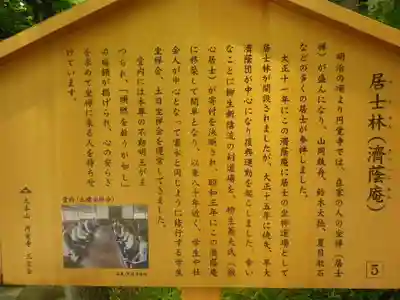 居士林(済蔭庵)
明治の頃より円覚寺では、在家の人の坐禅(居士
禅)が盛んになり、山岡鉄舟、鈴木大拙、夏目漱石
などの多くの居士が参禅しました。
大正十一年にこの済蔭庵に居士の坐禅道場として
居士林が開設されましたが、大正十五年に焼失、早大
済蔭団が中心になり復興運動を起こしました。幸い
なことに柳生新陰流の剣道場を、柳生基夫氏(
心居士)が寄付を決断され、昭和三年にこの済蔭庵
に移築して開単となり、以来八十年近く、学生や社
会人が中心となって雲水と同じように修行する学生
坐禅会、土日坐禅会を運営して来ました。
堂内には本尊の不動明王がま
つられ、「
の
を求めて坐禅に来る人を待ちせ
けています。
大本山 円覚寺 三宝会
堂内(土曜坐禅会)
5